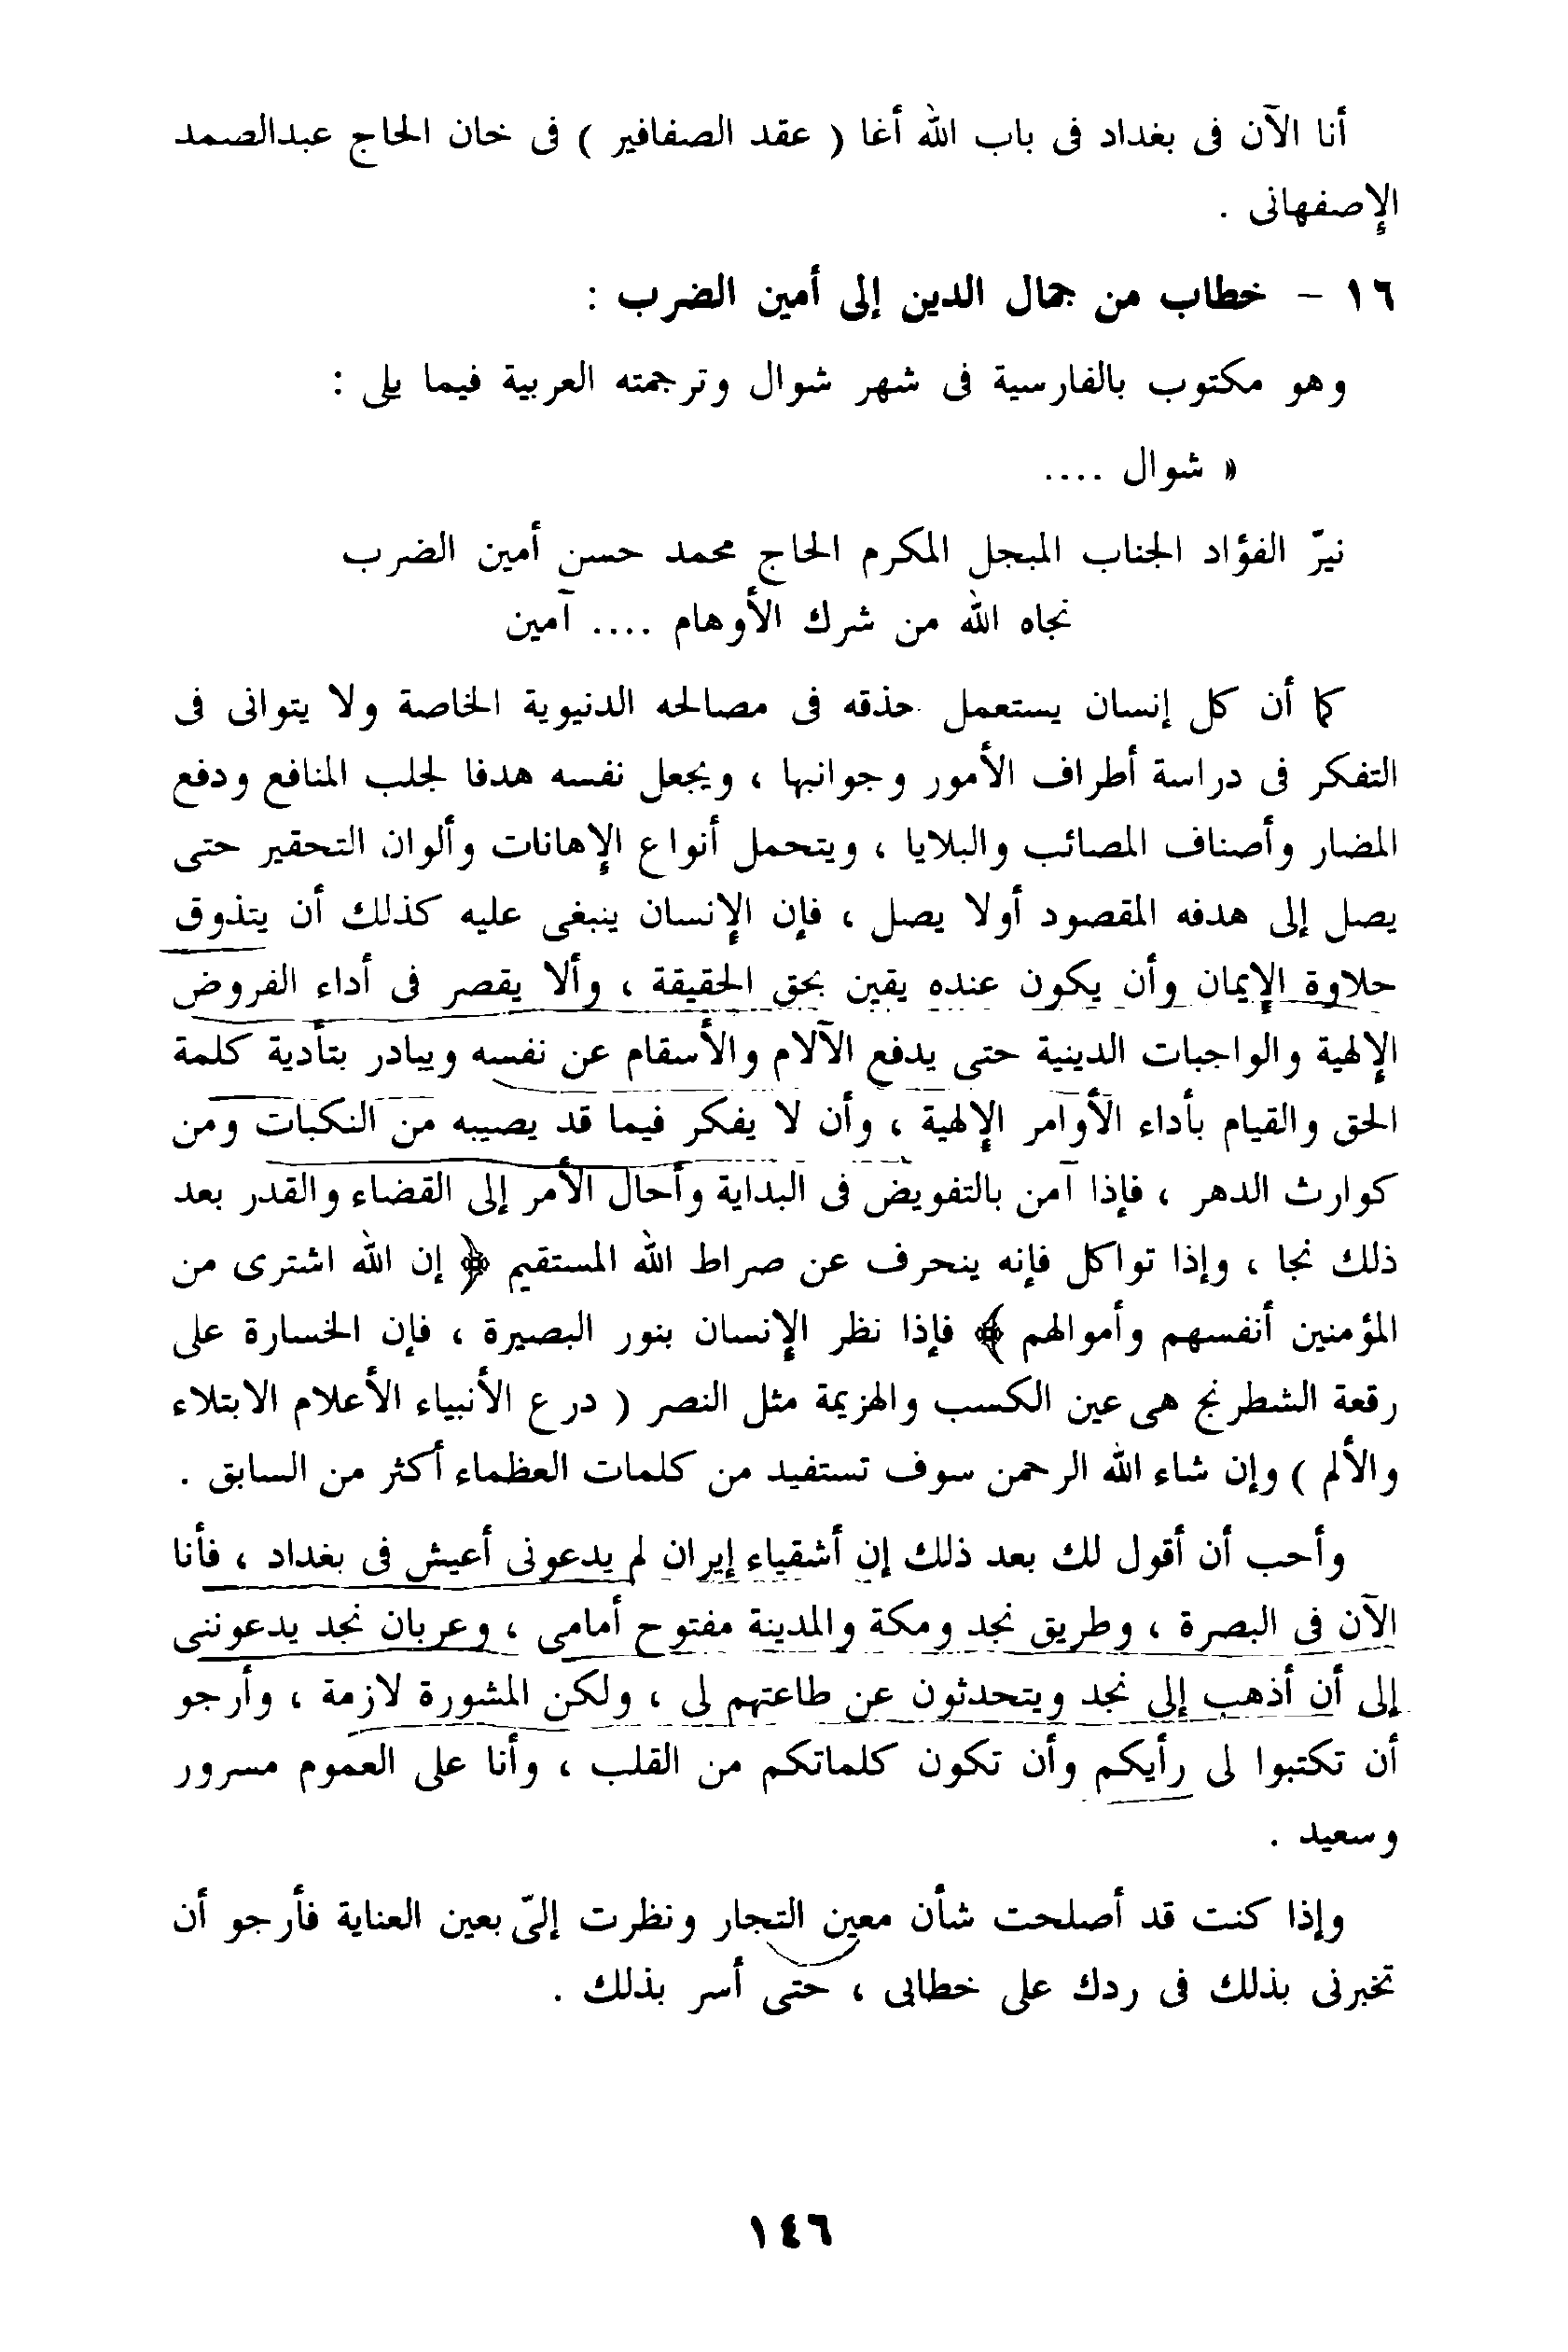 أنا الآن فى بغداد فى باب الله أغا ( عقد الصفافير ) فى خان الحاج عبدالصمد
الإصفهانى .
١٦ - خطاب من جمال الدين إلى أمين الضرب :
وهو مكتوب بالفارسية فى شهر شوال وترجمته العربية فيما يلى :
« شوال ....
نيّر الفؤاد الجناب المبجل المكرم الحاج محمد حسن أمين الضرب
نجاه الله من شرك الأوهام .... آمين
كما أن كل إنسان يستعمل حذقه فى مصالحه الدنيوية الخاصة ولا يتوانى فى
التفكر فى دراسة أطراف الأمور وجوانبها ، ويجعل نفسه هدفا لجلب المنافع ودفع
المضار وأصناف المصائب والبلايا ، ويتحمل أنواع الإهانات وألوان التحقير حتى
يصل إلى هدفه المقصود أولا يصل ، فإن الإنسان ينبغى عليه كذلك أن يتذوق
حلاوة الإيمان وأن يكون عنده يقين بحق الحقيقة ، وألا يقصر فى أداء الفروض
الإلهية والواجبات الدينية حتى يدفع الآلام والأسقام عن نفسه ويبادر بتأدية كلمة
الحق والقيام بأداء الأوامر الإلهية ، وأن لا يفكر فيما قد يصيبه من النكبات ومن
كوارث الدهر ، فإذا آمن بالتفويض فى البداية وأحال الأمر إلى القضاء والقدر بعد
ذلك نجا ، وإذا تواكل فإنه ينحرف عن صراط الله المستقيم ﴿ إن الله اشترى من
المؤمنين أنفسهم وأموالهم ﴾ فإذا نظر الإنسان بنور البصيرة ، فإن الخسارة على
رقعة الشطرنج هى عين الكسب والهزيمة مثل النصر ( درع الأنبياء الأعلام الابتلاء
والألم ) وإن شاء الله الرحمن سوف تستفيد من كلمات العظماء أكثر من السابق .
وأحب أن أقول لك بعد ذلك إن أشقياء إيران لم يدعونى أعيش فى بغداد ، فأنا
الآن فى البصرة ، وطريق نجد ومكة والمدينة مفتوح أمامى ، وعربان نجد يدعوننى
إلى أن أذهب إلى نجد ويتحدثون عن طاعتهم لى ، ولكن المشورة لازمة ، وأرجو
أن تكتبوا لى رأيكم وأن تكون كلماتكم من القلب ، وأنا على العموم مسرور
وسعيد .
وإذا كنت قد أصلحت شأن معين التجار ونظرت إلىّ بعين العناية فأرجو أن
تخبرنى بذلك فى ردك على خطابى ، حتى أسر بذلك .
١٤٦